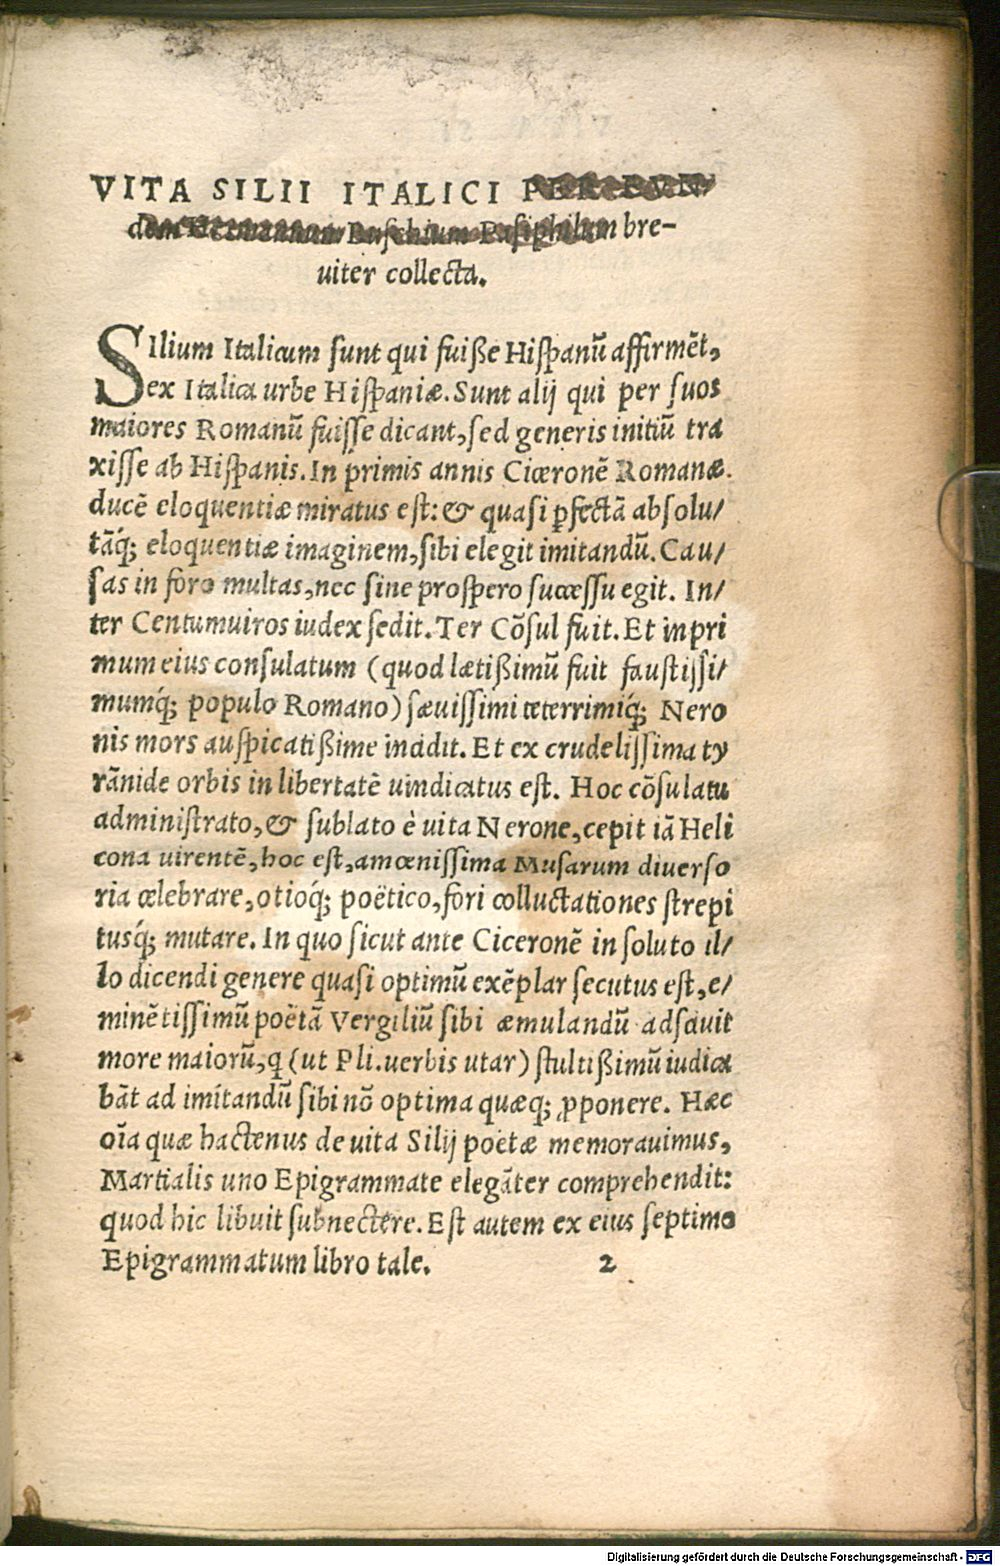 VITA SILII ITALICI PER EVN-
dem Hermannum Buschium Pasiphilum bre-
uiter collecta.
SIlium Italicum sunt qui fuiße Hispanũ affirmẽt,
ex Italica urbe Hispaniæ. Sunt alij qui per suos
maiores Romanũ fuisse dicant, sed generis initiũ tra
xisse ab Hispanis. In primis annis Ciceronẽ Romanæ
ducẽ eloquentiæ miratus est: & quasi ꝑfectã absolu/
tãq́; eloquentiæ imaginem, sibi elegit imitandũ. Cau/
sas in foro multas, nec sine prospero successu egit. In/
ter Centumuiros iudex sedit. Ter Cõsul fuit. Et in pri
mum eius consulatum (quod lætißimũ fuit faustissi/
mumq́; populo Romano) sæuissimi teterrimiq́; Nero
nis mors auspicatißime incidit. Et ex crudelissima ty
rãnide orbis in libertatẽ uindicatus est. Hoc cõsulatu
administrato, & sublato è uita Nerone, cepit iã Heli
cona uirentẽ, hoc est, amœnissima Musarum diuerso
ria celebrare, otioq́; poëtico, fori colluctationes strepi
tusq́; mutare. In quo sicut ante Ciceronẽ in soluto il/
lo dicendi genere quasi optimũ exẽplar secutus est, e/
minẽtissimũ poëtã Vergiliũ sibi æmulandũ adsciuit
more maiorũ, q (ut Pli. uerbis utar) stultißimũ iudica
bãt ad imitandũ sibi nõ optima quæq; ꝓponere. Hæc
oĩa quæ hactenus de uita Silij poetæ memorauimus,
Martialis uno Epigrammate elegãter comprehendit:
quod hic libuit subnectere. Est autem ex eius septimo
Epigrammatum libro tale. 2
Digitalisierung gefördert durch die Deutsche Forschungsgemeinschaft - DFG